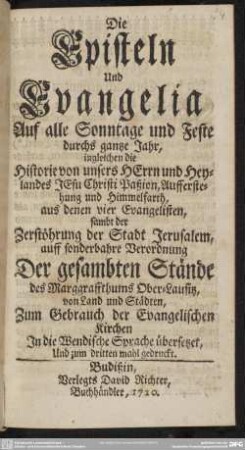 Die
Episteln
Und
Evangelia
Auf alle Sonntage und Feste
durchs gantze Jahr,
ingleichen die
Historie von unsers HErrn und Hey-
landes JEsu Christi Paßion, Aufferste-
hung und Himmelfarth,
aus denen vier Evangelisten,
sambt der
Zerstöhrung der Stadt Jerusalem,
auff sonderbahre Verordnung
Der gesambten Stände
des Marggraffthums Ober-Lausitz,
von Land und Städten,
Zum Gebrauch der Evangelischen
Kirchen
In die Wendische Sprache übersetzet,
Und zum dritten mahl gedruckt.
Budißin,
Verlegts David Richter,
Buchhändler, 1720.